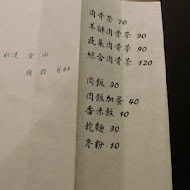 肉骨茶 70
羊排肉骨茶 90
蔬菜肉骨茶 90
綜合肉骨茶 120
肉飯 30
肉飯加蛋 40
香米飯 10
乾麵 30
冬粉 10